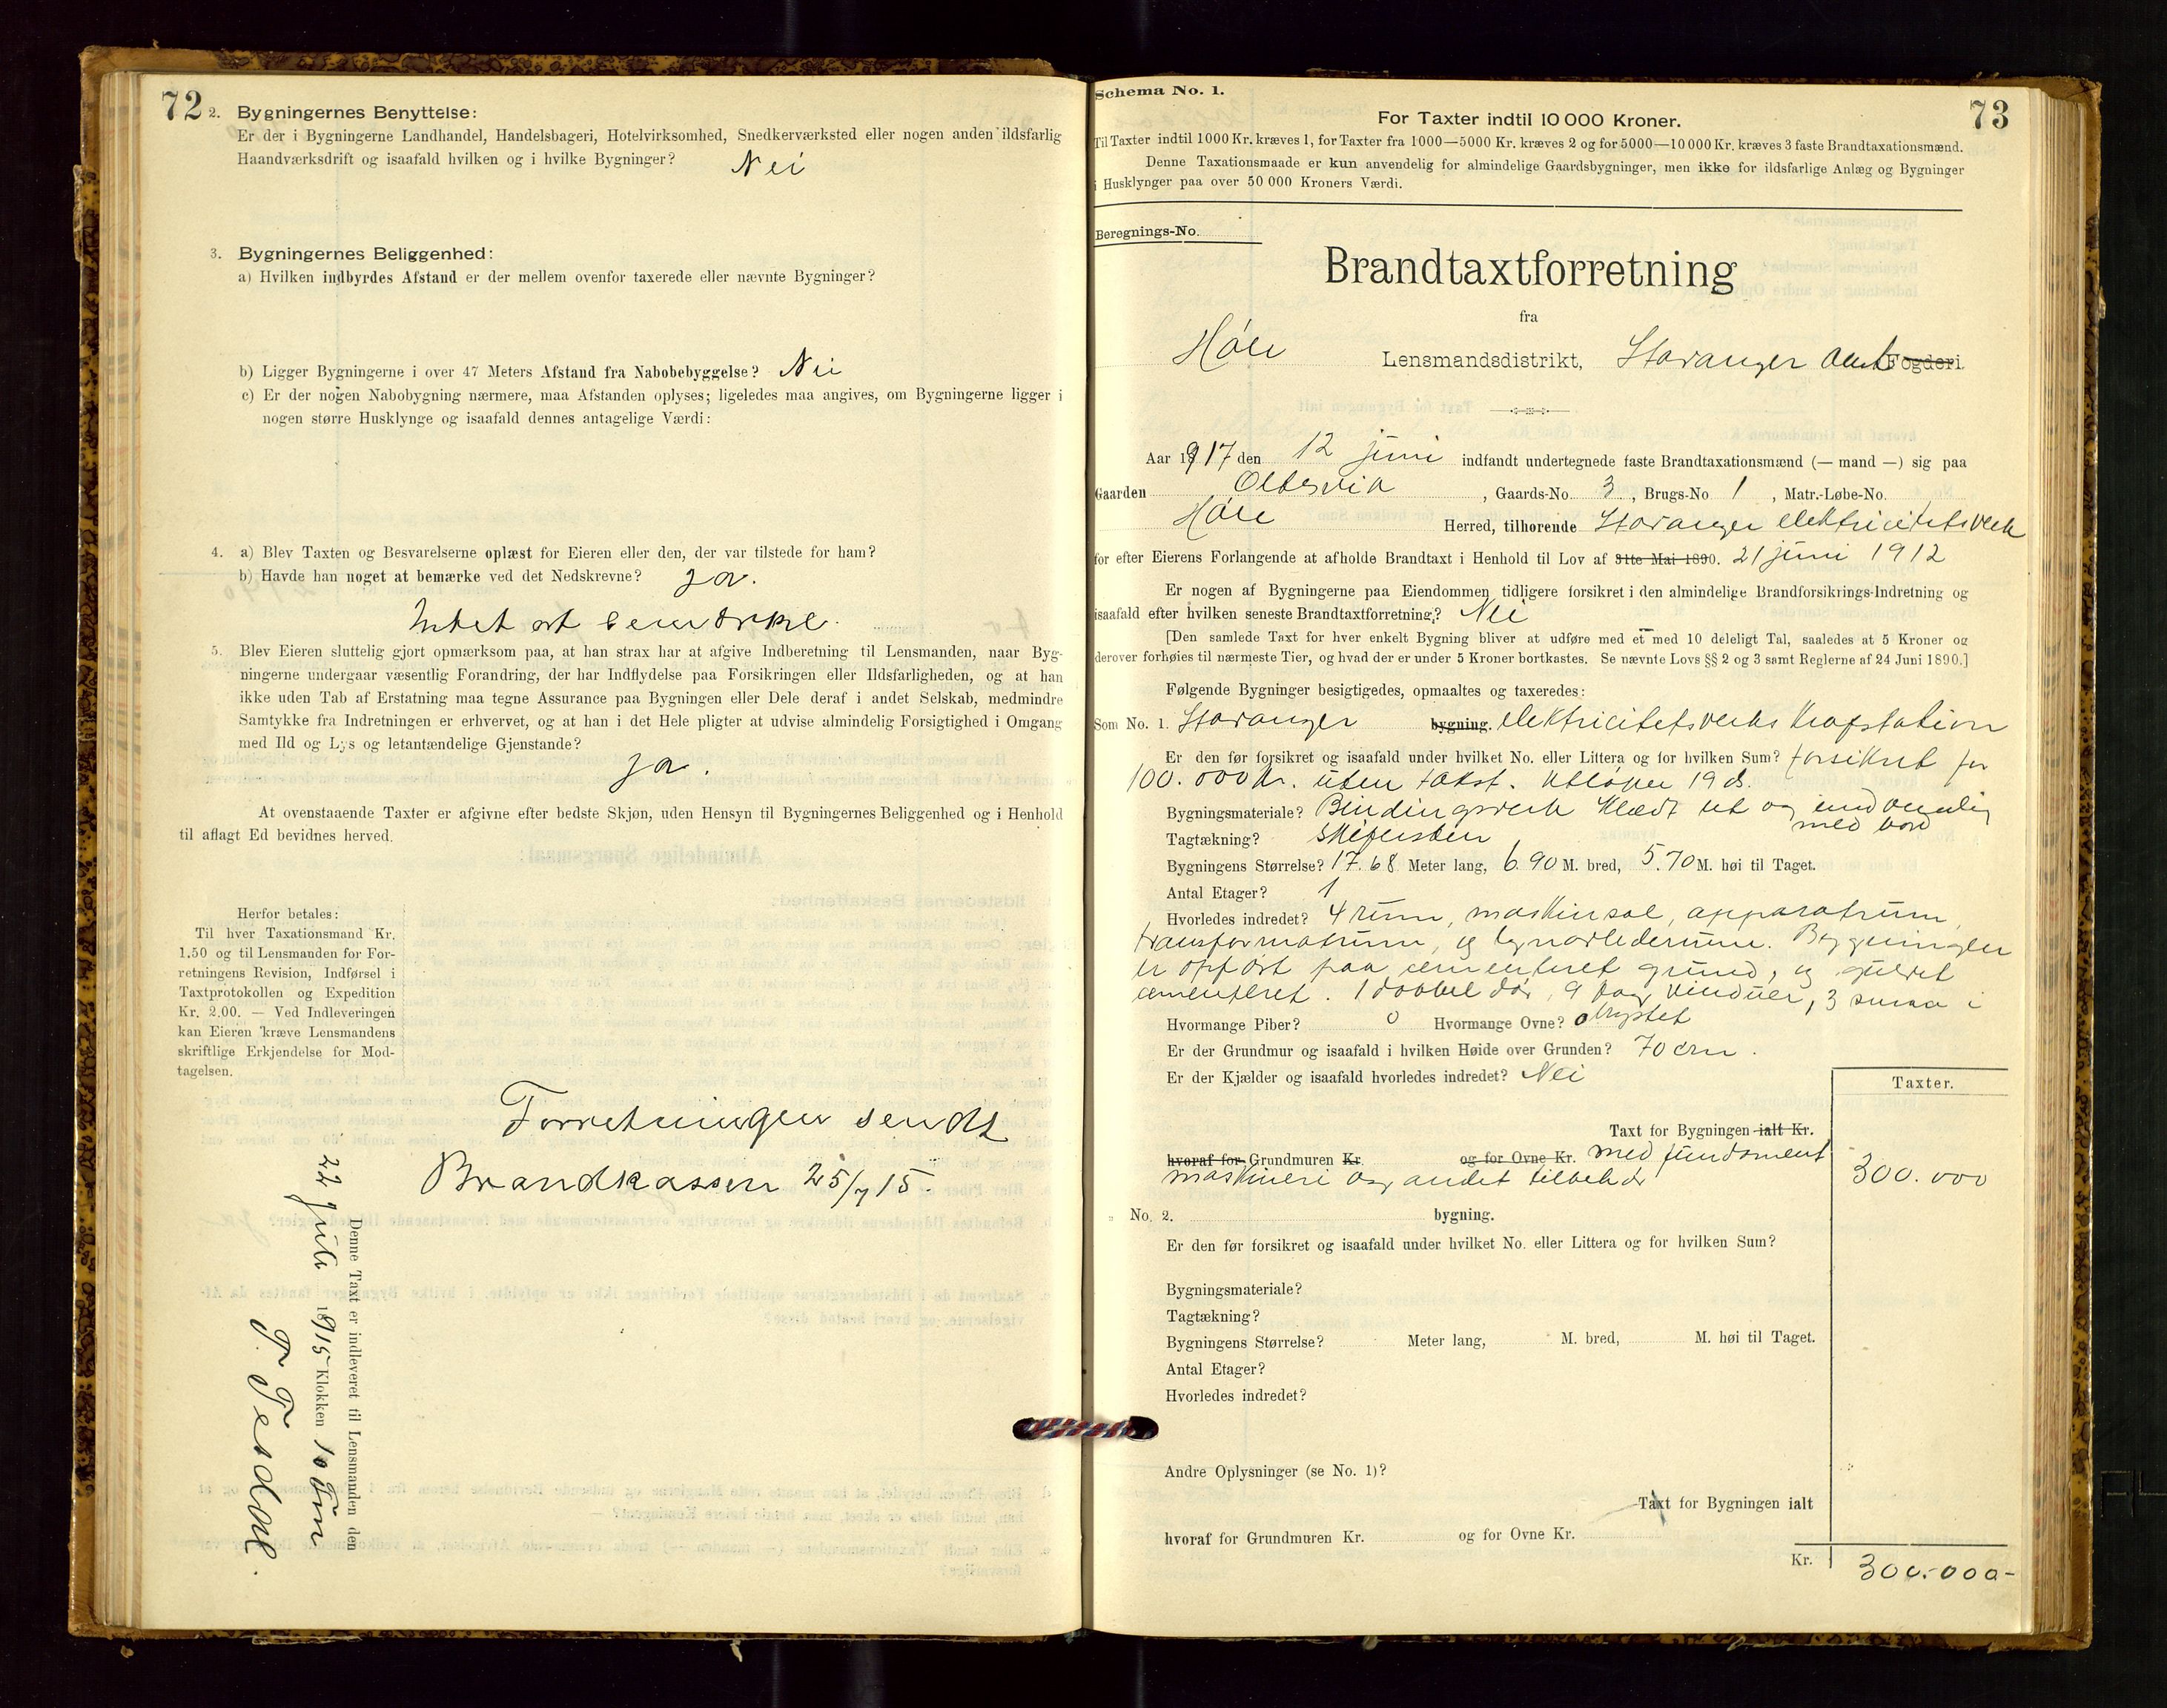 72
2. Bygningernes Benyttelse:
Er der i Bygningerne Landhandel, Handelsbageri, Hotelvirksomhed, Snedkerværksted eller nogen anden ildsfarlig
Haandværksdrift og isaafald hvilken og i hvilke Bygninger? Nei
3. Bygningernes Beliggenhed:
a) Hvilken indbyrdes Afstand er der mellem ovenfor taxerede eller nævnte Bygninger?
b) Ligger Bygningerne i over 47 Meters Afstand fra Nabobebyggelse? Nei
c) Er der nogen Nabobygning nærmere, maa Afstanden oplyses; ligeledes maa angives, om Bygningerne ligger i
nogen større Husklynge og isaafald dennes antagelige Værdi:
4. a) Blev Taxten og Besvarelserne oplæst for Eieren eller den, der var tilstede for ham?
b) Havde han noget at bemærke ved det Nedskrevne? ja.
Intet at bemærke.
5. Blev Eieren sluttelig gjort opmærksom paa, at han strax har at afgive Indberetning til Lensmanden, naar Byg-
ningerne undergaar væsentlig Forandring, der har Indflydelse paa Forsikringen eller Ildsfarligheden, og at han
ikke uden Tab af Erstatning maa tegne Assurance paa Bygningen eller Dele deraf i andet Selskab, medmindre
Samtykke fra Indretningen er erhvervet, og at han i det Hele pligter at udvise almindelig Forsigtighed i Omgang
med Ild og Lys og letantændelige Gjenstande?
ja.
At ovenstaaende Taxter er afgivne efter bedste Skjøn, uden Hensyn til Bygningernes Beliggenhed og i Henhold
til aflagt Ed bevidnes herved.
Herfor betales:
Til hver Taxationsmand Kr.
1.50 og til Lensmanden for For-
retningens Revision, Indførsel i
Taxtprotokollen og Expedition
Kr. 2.00. — Ved Indleveringen
kan Eieren kræve Lensmandens
skriftlige Erkjendelse for Mod-
tagelsen.
Forretningen sendt
Brandkassen 25/7 15.
Denne Taxt er indleveret til Lensmanden den
22 juli 1915 Klokken 10 Fm
T. Tesdal.
73
Schema No. 1.
For Taxter indtil 10 000 Kroner.
Til Taxter indtil 1000 Kr. kræves 1, for Taxter fra 1000—5000 Kr. kræves 2 og for 5000—10 000 Kr. kræves 3 faste Brandtaxationsmænd.
Denne Taxationsmaade er kun anvendelig for almindelige Gaardsbygninger, men ikke for ildsfarlige Anlæg og Bygninger
i Husklynger paa over 50 000 Kroners Værdi.
Beregnings-No.
Brandtaxtforretning
fra
Høle Lensmandsdistrikt, Stavanger Amt Fogderi.
Aar 1917 den 12 juni indfandt undertegnede faste Brandtaxationsmænd (— mand —) sig paa
Gaarden Oltesvik, Gaards-No. 3, Brugs-No 1, Matr.-Løbe-No.
Høle Herred, tilhørende Stavanger elektricitetsverk
for efter Eierens Forlangende at afholde Brandtaxt i Henhold til Lov af 31te Mai 1890. 21 juni 1912
Er nogen af Bygningerne paa Eiendommen tidligere forsikret i den almindelige Brandforsikrings-Indretning og
isaafald efter hvilken seneste Brandtaxtforretning? Nei
[Den samlede Taxt for hver enkelt Bygning bliver at udføre med et med 10 deleligt Tal, saaledes at 5 Kroner og
derover forhøies til nærmeste Tier, og hvad der er under 5 Kroner bortkastes. Se nævnte Lovs §§ 2 og 3 samt Reglerne af 24 Juni 1890.]
Følgende Bygninger besigtigedes, opmaaltes og taxeredes:
Som No. 1. Stavanger bygning. elektricitetsverks Krafstation
Er den før forsikret og isaafald under hvilket No. eller Littera og for hvilken Sum? forsikret for
100.000 Kr. uten takst. utløper 19 ds.
Bygningsmateriale? Bindingsverk klædt ut og indvendig
med bord
Tagtækning? Skifersten
Bygningens Størrelse? 17.68 Meter lang, 6.90 M. bred, 5.70 M. høi til Taget.
Antal Etager? 1
Hvorledes indredet? 4 rum, maskinsal, apparatrum,
transformatrum, og lynavlederum. Bygningen
er opført paa cementeret grund, og gulvet
cementeret. 1 dobbel dør, 9 fag vinduer, 3 smaa i
Hvormange Piber? 0 Hvormange Ovne? 0
Er der Grundmur og isaafald i hvilken Høide over Grunden? 70 cm.
Er der Kjælder og isaafald hvorledes indredet? Nei
Taxter.
Taxt for Bygningen ialt Kr.
hvoraf for Grundmuren Kr. og for Ovne Kr. med fundament
maskineri og andet tilbehør 300.000
No. 2. bygning.
Er den før forsikret og isaafald under hvilket No. eller Littera og for hvilken Sum?
Bygningsmateriale?
Tagtækning?
Bygningens Størrelse? Meter lang, M. bred, M. høi til Taget.
Antal Etager?
Hvorledes indredet?
Andre Oplysninger (se No. 1)?
Taxt for Bygningen ialt
hvoraf for Grundmuren Kr. og for Ovne Kr.
Kr. 300.000-